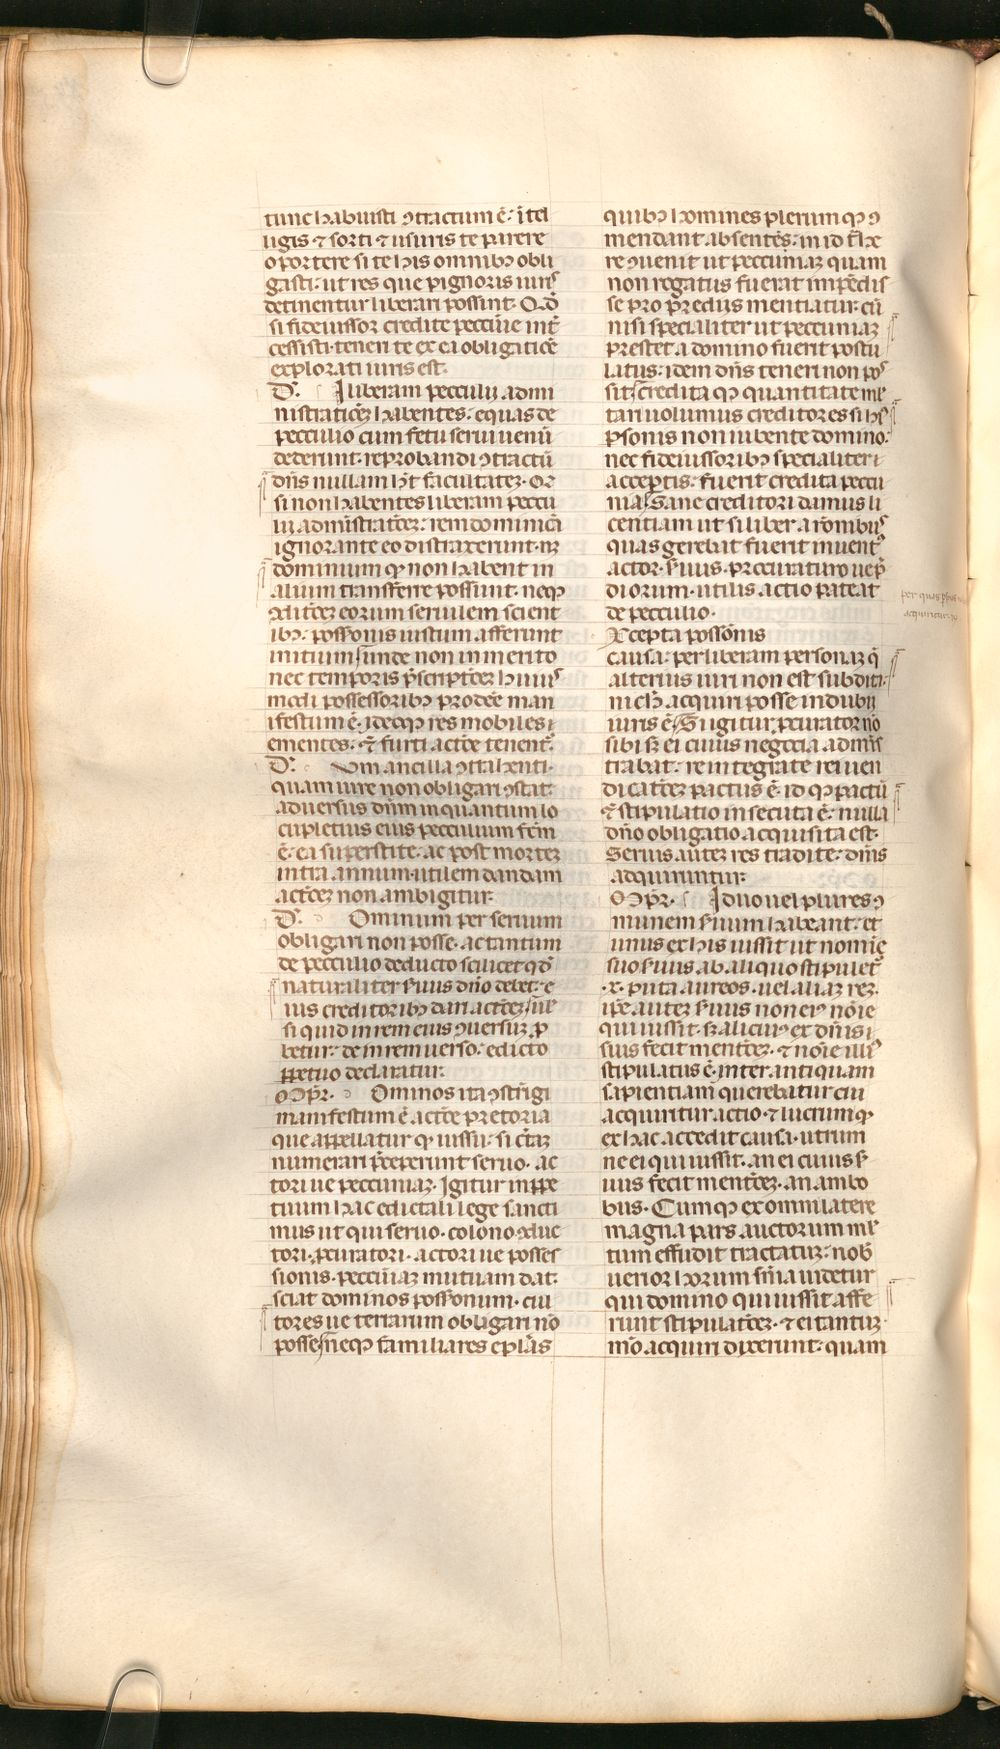 tunc habuisti ꝯtractum ē: ītel
ligis ⁊ sorti ⁊ usuris te parere
oportere si te his omnibꝫ obli
gasti: ut res que pignoris iuris
detinentur liberari possint. Qꝺ
si fideiussor credite peccūie int̄
cessisti. tenen te ex ea obligatiōe
explorati iuris est.
D'. I liberam peculij admi
nistratiōeꝫ habentes. equas de
peculio cum fetu serui uenū
dederint. reprobandi ꝯtractū
dn̄s nullam hꝫt facultateꝫ. Qꝺ
si non habentes liberam peccu
lij administratiōeꝫ: rem dominicā
ignorante eo distraxerunt. neꝫ
dominium qꝫ non habent in
alium transferre possunt. neqꝫ
ꝯditōeꝫ eorum seruilem scient
ibꝫ: possonis iustum afferunt
initium unde non inmerito
nec temporis p̄scriptōeꝫ huius
modi possessoribꝫ prodeē man
ifestum ē. ideoqꝫ res mobiles
ementes. ⁊ furti actōe tenent.
D'. um ancilla ꝯtrahenti.
quam iure non obligari ꝯstat:
aduersus dn̄m inquantum lo
cupletius eius peccuium fcm̄
ē. ea superstite. ac post morteꝫ
intra annum utilem dandam
actōeꝫ non ambigitur.
D'. Ominum per seruum
obligari non posse. ac tantum
de peculio deducto scilicet qꝺ
naturaliter suus dn̄o debet. e
ius creditoribꝫ dari actōeꝫ uel
si quid in rem eius ꝯuersuꝫ ꝓ
betur: de in rem uerso. edicto
ꝑpetuo declaratur.
Ominos ita ꝯstringi
manifestum ē actōe pretoria
que appellatur qꝫ iussu: si c̄taꝫ
numerari p̄ceperunt seruo. ac
tori ue peccuniaꝫ. Igitur inppe
tuum hac edictali lege sanci
mus ut qui seruo. colono. ꝯduc
tori. ꝓcuratori. actori ue posses
sionis. peccūiaꝫ mutuam dat:
sciat dominos possonum. cul
tores ue terrarum obligari nō
posse neqꝫ familiares epl̄as
quibꝫ homines plerumqꝫ ꝯ
mendant absentes: in id t̄he
re ꝯuenit ut peccuniaꝫ quam
non rogatus fuerat impēdis
se pro p̄redijs mentiatur: cū
nisi specialiter ut peccuniaꝫ
prestet a domino fuerit postu
latus: idem dn̄s teneri non pos
sit credita qꝫ quantitate mul
tari uolumus creditores si hꝫ
ꝑsonis non iubente domino:
nec fideiussoribꝫ specialiter
acceptis. fuerit credita peccu
nia Sane creditori damus li
centiam ut si liber a rōnibus
quas gerebat fuerit inuentꝰ
actor. suus. procurator ue p̄
diorum. utilis actio pateat
de peculio.
Xcepta possōnis
causa: per liberam personaꝫ q̄
alterius iuri non est subdita.
nichꝫ acquiri posse indubij
iuris ē Si igitur ꝓcurator nō
sibi sꝫ ei cuius negocia admīs
trabat: reintegrate rei uen
dicatōeꝫ pactus ē. id qꝫ pactū
⁊ stipulatio insecuta ē: nulla
dn̄o obligatio acquisita est.
Seruis auteꝫ res tradite: dn̄is
adquiruntur:
I duo uel plures ꝯ
munem suum habeant. et
unus ex his iussit ut nomīe
suo suus ab aliquo stipulet̄
.x. puta aureos. uel aliaꝫ reꝫ.
ip̄e auteꝫ suus non eiꝰ nōie
qui iussit. sꝫ aliciuꝰ ex dn̄is
suis fecit mentōeꝫ. ⁊ nōie illiꝰ
stipulatus ē. inter antiquam
sapientiam querebatur cui
acquiritur actio. ⁊ lucrum qꝫ
ex hac accedit causa. utrum
ne ei qui iussit. an ei cuius s̄
uus fecit mentōeꝫ. an ambo
bus. Cumqꝫ ex omni latere
magna pars auctorum mul
tum effudit tractatuꝫ: nob̄
uerior horum sn̄ia uidetur
qui domino qui iussit affe
runt stipulatōeꝫ. ⁊ ei tantuꝫ
mō acquiri dixerunt: quam